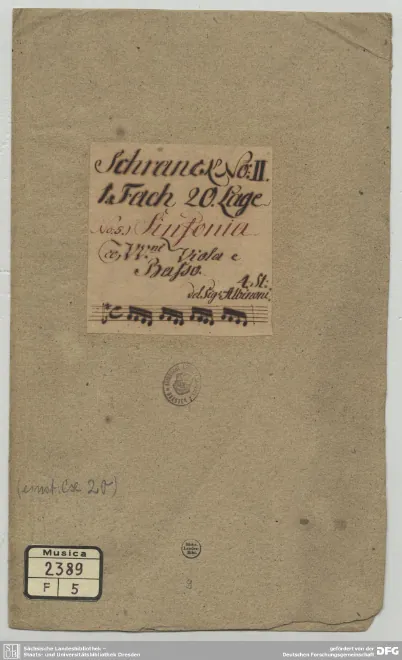 Schranck No: II.
1. Fach 20. Lage
No: 5.) Sinfonia
co VV.ni Viola e
Basso.
4. St:
del Sig: Albinoni.
(einst: Cx 20)
Musica
2389
F 5
3
Sächsische Landesbibliothek –
Staats- und Universitätsbibliothek Dresden
gefördert von der
Deutschen Forschungsgemeinschaft DFG